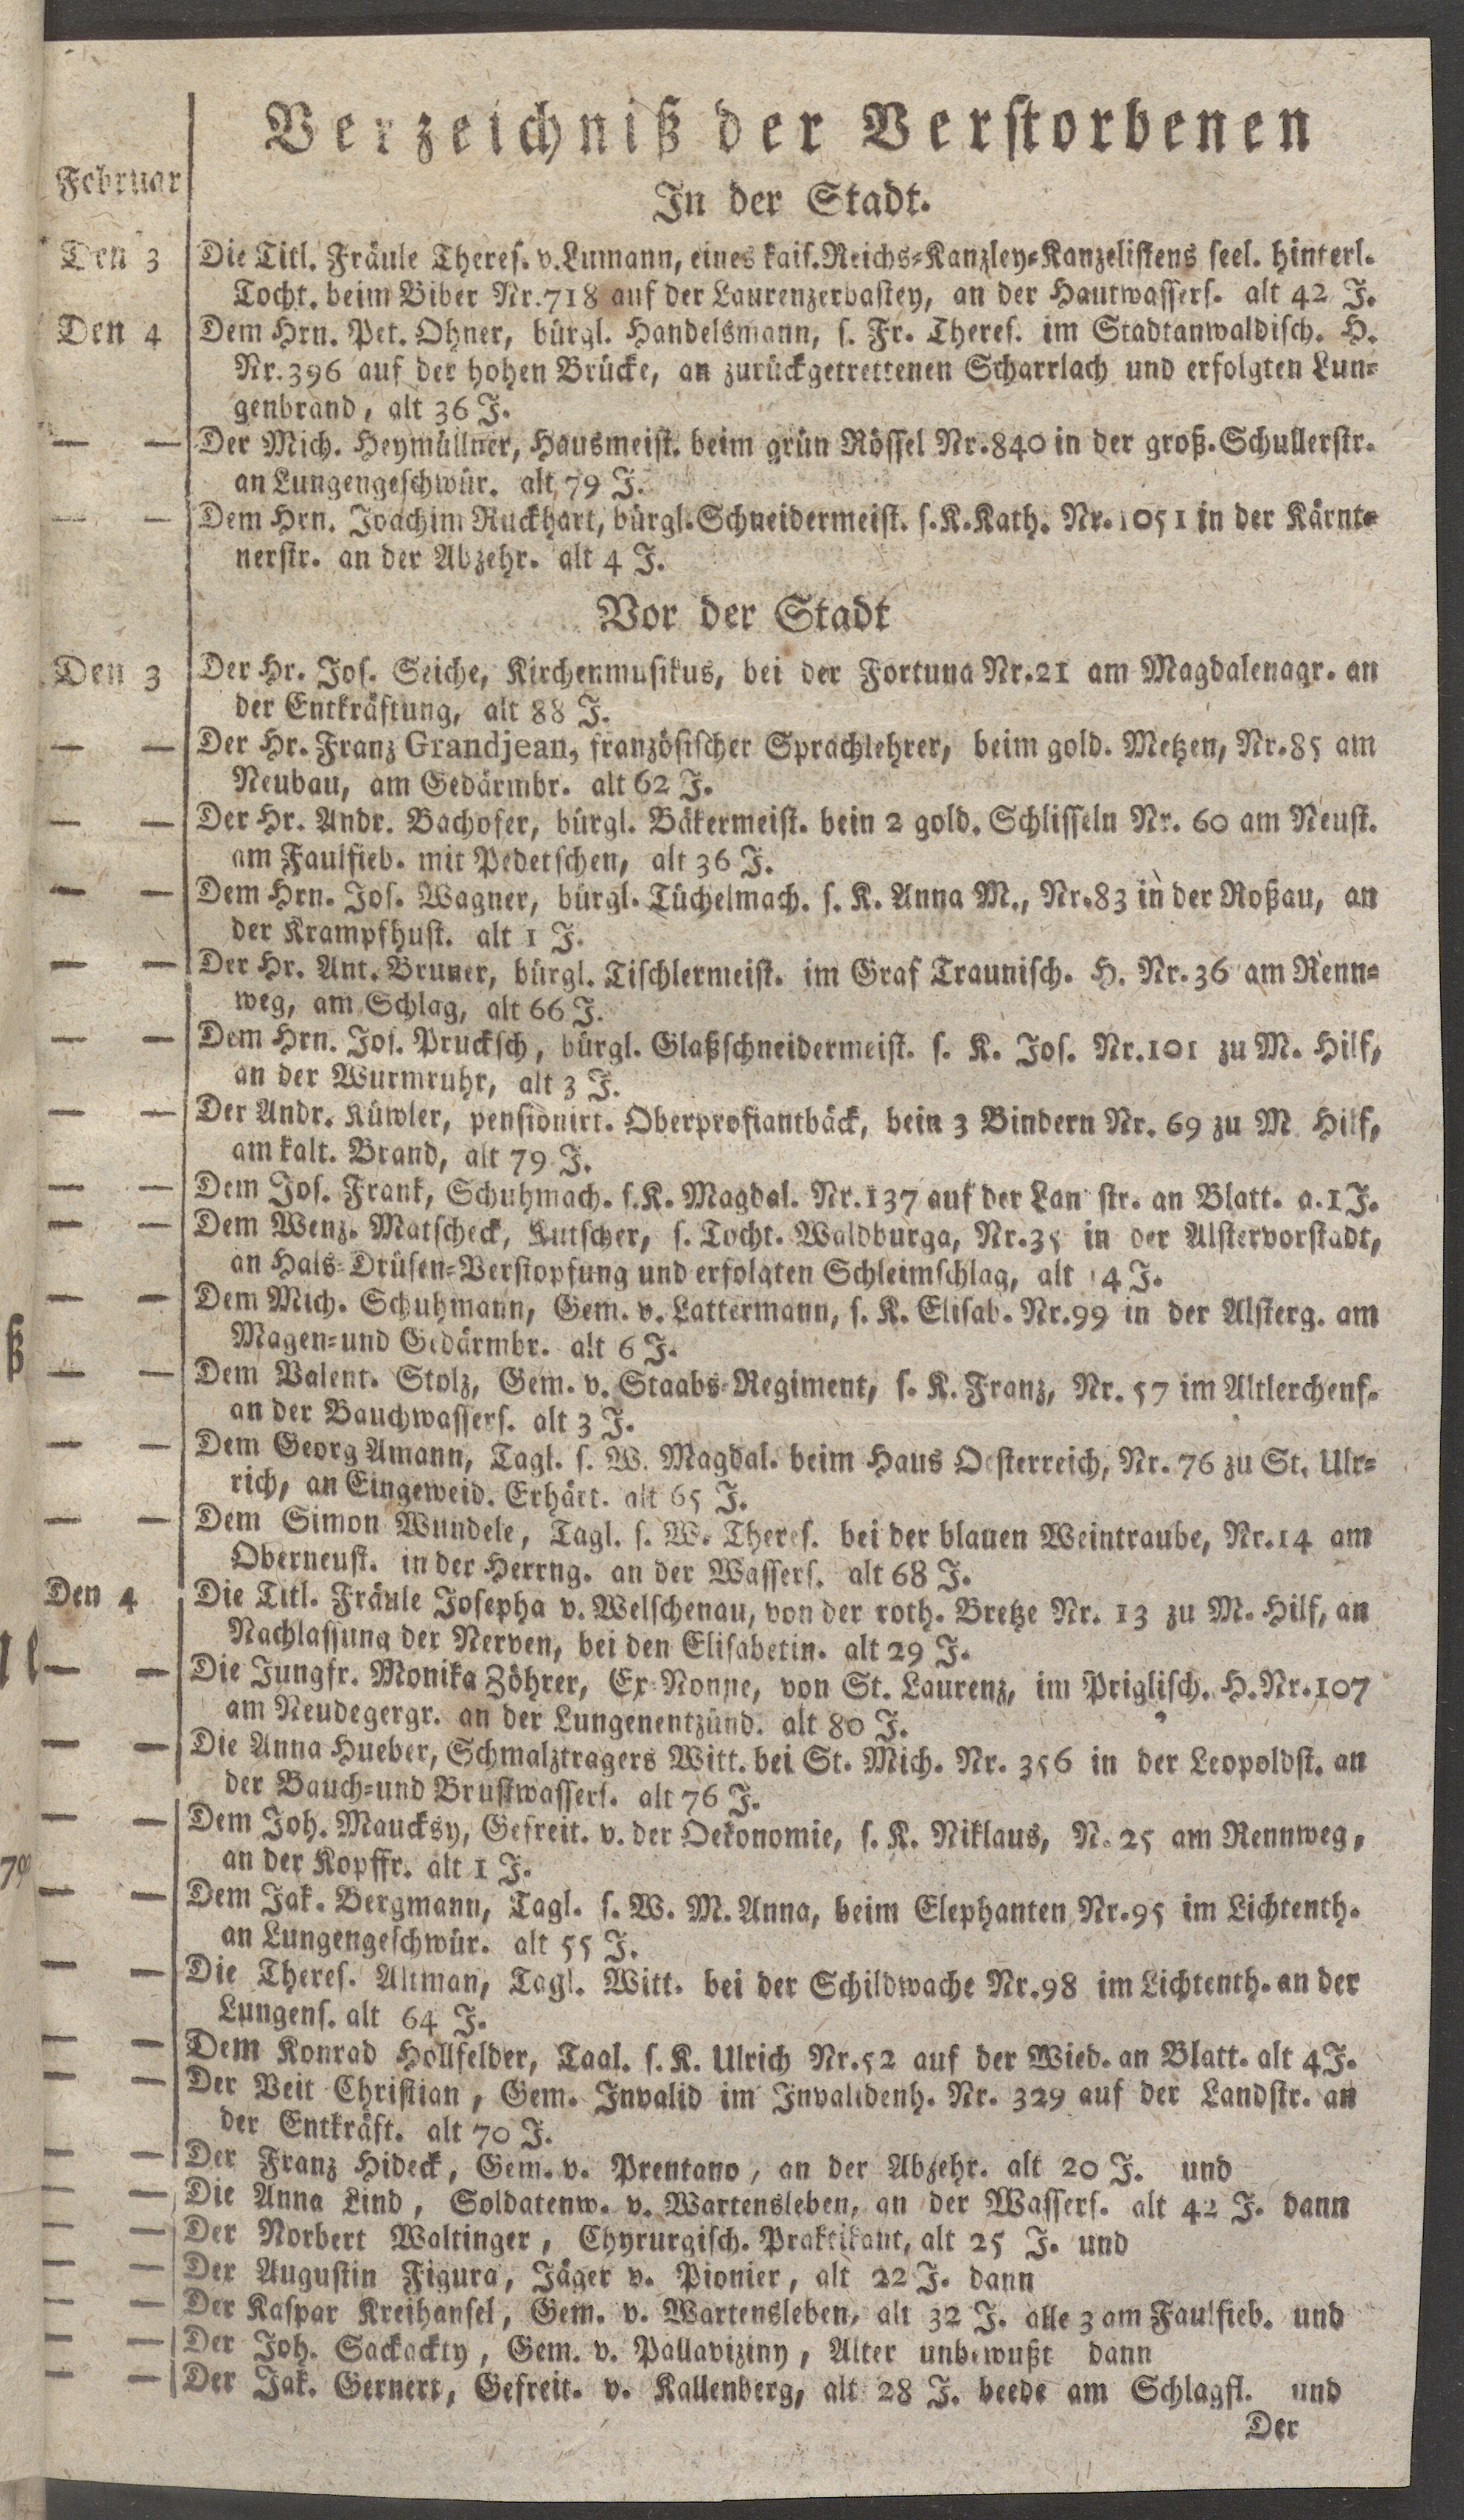 Verzeichniß der Verstorbenen
Februar
In der Stadt.
Den 3 Die Titl. Fräule Theres. v. Lumann, eines kais. Reichs-Kanzley-Kanzelistens seel. hinterl.
Tocht. beim Biber Nr. 718 auf der Laurenzerbastey, an der Hautwassers. alt 42 J.
Den 4 Dem Hrn. Pet. Ohner, bürgl. Handelsmann, s. Fr. Theres. im Stadtanwaldisch. H.
Nr. 396 auf der hohen Brücke, an zurückgetrettenen Scharrlach und erfolgten Lun-
genbrand, alt 36 J.
— — Der Mich. Heymüllner, Hausmeist. beim grün Rössel Nr. 840 in der groß. Schullerstr.
an Lungengeschwür. alt 79 J.
— — Dem Hrn. Joachim Ruckhart, bürgl. Schneidermeist. s. K. Kath. Nr. 1051 in der Kärnt-
nerstr. an der Abzehr. alt 4 J.
Vor der Stadt
Den 3 Der Hr. Jos. Seiche, Kirchenmusikus, bei der Fortuna Nr. 21 am Magdalenagr. an
der Entkräftung, alt 88 J.
— — Der Hr. Franz Grandjean, französischer Sprachlehrer, beim gold. Metzen, Nr. 85 am
Neubau, am Gedärmbr. alt 62 J.
— — Der Hr. Andr. Bachofer, bürgl. Bäkermeist. bein 2 gold. Schlisseln Nr. 60 am Neust.
am Faulfieb. mit Pedetschen, alt 36 J.
— — Dem Hrn. Jos. Wagner, bürgl. Tüchelmach. s. K. Anna M., Nr. 83 in der Roßau, an
der Krampfhust. alt 1 J.
— — Der Hr. Ant. Bruner, bürgl. Tischlermeist. im Graf Traunisch. H. Nr. 36 am Renn-
weg, am Schlag, alt 66 J.
— — Dem Hrn. Jos. Prucksch, bürgl. Glaßschneidermeist. s. K. Jos. Nr. 101 zu M. Hilf,
an der Wurmruhr, alt 3 J.
— — Der Andr. Küwler, pensionirt. Oberprofiantbäck, bein 3 Bindern Nr. 69 zu M Hilf,
am kalt. Brand, alt 79 J.
— — Dem Jos. Frank, Schuhmach. s. K. Magdal. Nr. 137 auf der Lan str. an Blatt. a. 1 J.
— — Dem Wenz. Matscheck, Kutscher, s. Tocht. Waldburga, Nr. 35 in der Alstervorstadt,
an Hals-Drüsen-Verstopfung und erfolgten Schleimschlag, alt 4 J.
— — Dem Mich. Schuhmann, Gem. v. Lattermann, s. K. Elisab. Nr. 99 in der Alsterg. am
Magen- und Gedärmbr. alt 6 J.
— — Dem Valent. Stolz, Gem. v. Staabs-Regiment, s. K. Franz, Nr. 57 im Altlerchenf.
an der Bauchwassers. alt 3 J.
— — Dem Georg Amann, Tagl. s. W. Magdal. beim Haus Oesterreich, Nr. 76 zu St. Ulr-
rich, an Eingeweid. Erhärt. alt 65 J.
— — Dem Simon Wundele, Tagl. s. W. Theres. bei der blauen Weintraube, Nr. 14 am
Oberneust. in der Herrng. an der Wassers. alt 68 J.
Den 4 Die Titl. Fräule Josepha v. Welschenau, von der roth. Bretze Nr. 13 zu M. Hilf, an
Nachlassung der Nerven, bei den Elisabetin. alt 29 J.
— — Die Jungfr. Monika Zöhrer, Ex-Nonne, von St. Laurenz, im Priglisch. H. Nr. 107
am Neudegergr. an der Lungenentzünd. alt 80 J.
— — Die Anna Hueber, Schmalztragers Witt. bei St. Mich. Nr. 356 in der Leopoldst. an
der Bauch- und Brustwassers. alt 76 J.
— — Dem Joh. Maucksy, Gefreit. v. der Oekonomie, s. K. Niklaus, N. 25 am Rennweg,
an der Kopffr. alt 1 J.
— — Dem Jak. Bergmann, Tagl. s. W. M. Anna, beim Elephanten Nr. 95 im Lichtenth.
an Lungengeschwür. alt 55 J.
— — Die Theres. Altman, Tagl. Witt. bei der Schildwache Nr. 98 im Lichtenth. an der
Lungens. alt 64 J.
— — Dem Konrad Hollfelder, Taal. s. K. Ulrich Nr. 52 auf der Wied. an Blatt. alt 4 J.
— — Der Veit Christian, Gem. Invalid im Invalidenh. Nr. 329 auf der Landstr. an
der Entkräft. alt 70 J.
— — Der Franz Hideck, Gem. v. Prentano, an der Abzehr. alt 20 J. und
— — Die Anna Lind, Soldatenw. v. Wartensleben, an der Wassers. alt 42 J. dann
— — Der Norbert Waltinger, Chyrurgisch. Praktikant, alt 25 J. und
— — Der Augustin Figura, Jäger v. Pionier, alt 22 J. dann
— — Der Kaspar Kreihansel, Gem. v. Wartensleben, alt 32 J. alle 3 am Faulfieb. und
— — Der Joh. Sackackty, Gem. v. Pallaviziny, Alter unbewußt dann
— — Der Jak. Gernert, Gefreit. v. Kallenberg, alt 28 J. beede am Schlagfl. und
Der